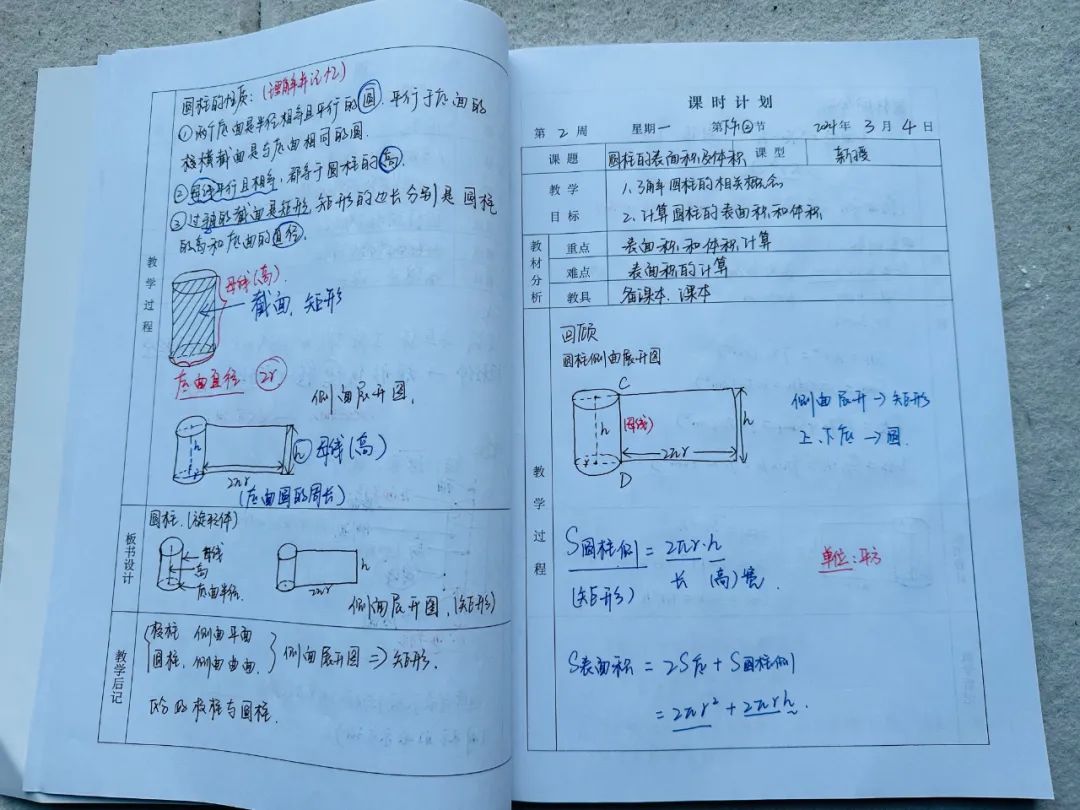 教学过程
圆柱的性质:(理解并记忆)
①两个底面是半径相等且平行的圆.平行于底面的
横截面是与底面相同的圆.
②母线平行且相等,都等于圆柱的高.
③过轴的截面是矩形,矩形的边长分别是圆柱
的高和底面的直径.
母线(高).
截面,矩形
底面直径 2r
侧面展开图,
h
h
母线(高)
2πr
(底面圆的周长)
板书设计
圆柱.(旋转体)
母线
高
底面半径.
h
2πr
侧面展开图,(矩形)
教学后记
棱柱 侧面平面
圆柱,侧面曲面.
侧面展开图⇒矩形.
区分好棱柱与圆柱.
课时计划
第 2 周 星期一 第 下午② 节 2024年 3 月 4 日
课题 圆柱的表面积及体积 课型 新授
教学目标
1.了解圆柱的相关概念
2.计算圆柱的表面积和体积
教材分析
重点 表面积和体积计算
难点 表面积的计算
教具 备课本.课本
教学过程
回顾
圆柱侧面展开图
C
h
(母线)
h
2πr
r
D
侧面展开→矩形
上.下底→圆.
S圆柱侧 = 2πr·h
长 (高)宽.
(矩形)
单位:平方
S表面积 = 2S底 + S圆柱侧
= 2πr² + 2πrh.